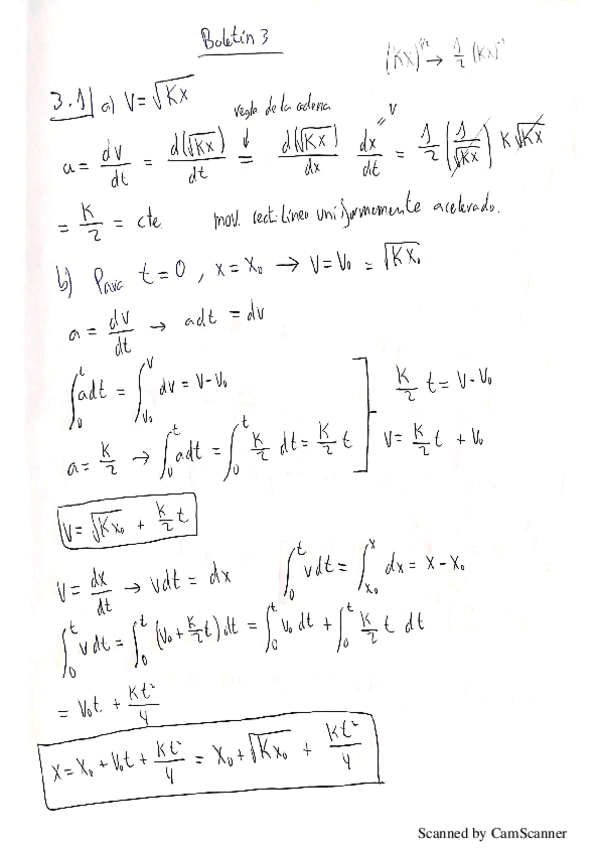 Boletín 3
(KX)^1/2 → 1/2 (KX)^-1
3.1 a) V = √KX
regla de la cadena
a = dv/dt = d(√KX)/dt = d(√KX)/dx dx/dt = 1/2 (1/√KX) K √KX
↓ " V
= K/2 = cte mov. rectilíneo uniformemente acelerado.
b) Para t = 0, x = X₀ → V = V₀ = √KX₀
a = dv/dt → adt = dv
∫₀^t adt = ∫_V₀^V dv = V - V₀
K/2 t = V - V₀
a = K/2 → ∫₀^t adt = ∫₀^t K/2 dt = K/2 t
V = K/2 t + V₀
V = √KX₀ + K/2 t
V = dx/dt → Vdt = dx ∫₀^t Vdt = ∫_X₀^X dx = X - X₀
∫₀^t V dt = ∫₀^t (V₀ + K/2 t) dt = ∫₀^t V₀ dt + ∫₀^t K/2 t dt
= V₀t + Kt²/4
X = X₀ + V₀t + Kt²/4 = X₀ + √KX₀ + Kt²/4
Scanned by CamScanner